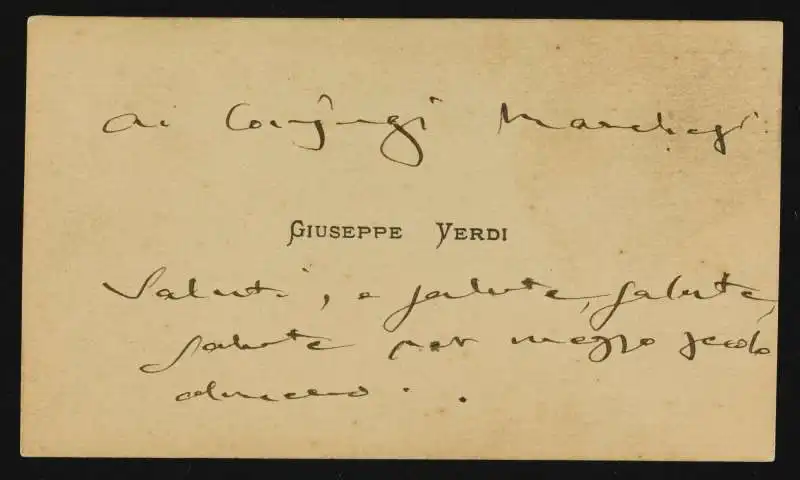 Ai Conjugi Marchesi
GIUSEPPE VERDI
Saluti, e salute, salute,
salute per mezzo secolo
almeno . .